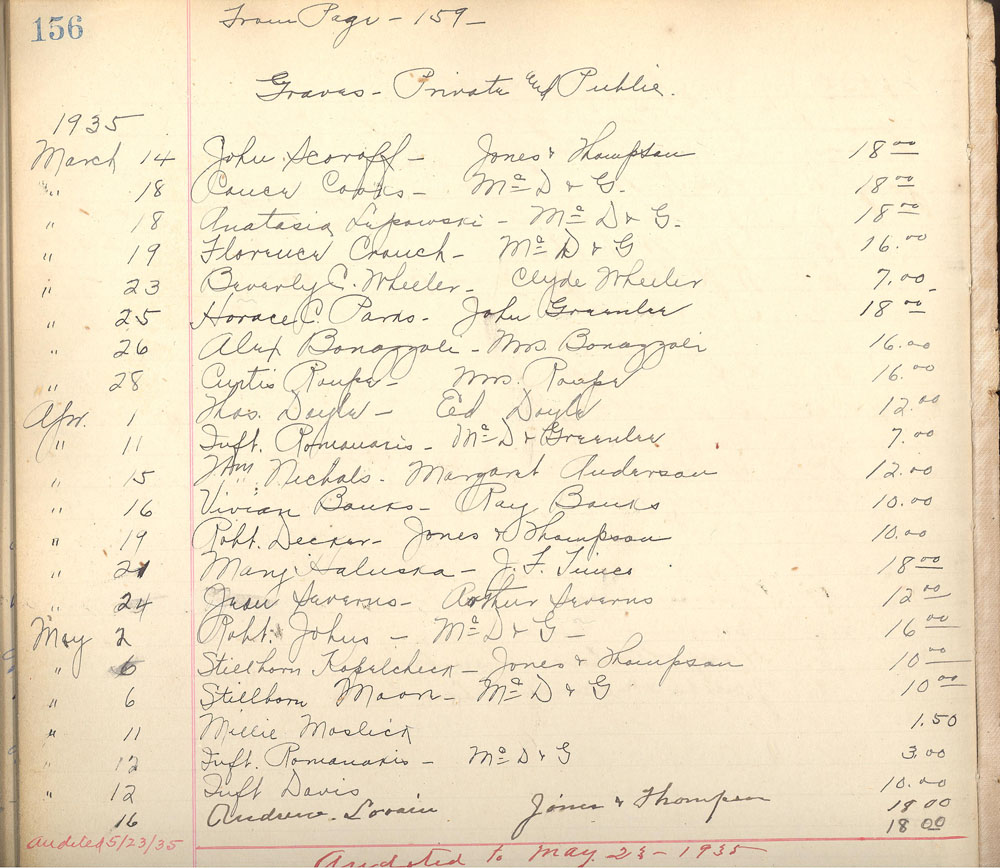 156
From Page - 159 -
Graves - Private and Public.
1935
March 14 John Scoroff - Jones & Thompson 18 00
" 18 M c D & G. 18 00
" 18 Anastasia Lypowski - M c D & G. 18 00
" 19 Florence Crouch - M c D & G 16.00
" 23 Beverly C. Wheeler - Clyde Wheeler 7.00
" 25 Horace C. Parks - John Greenlee 18 00
" 26 Alex Bonazzoli - Mrs Bonazzoli 16.00
" 28 Curtis Roupe - Mrs. Roupe 16.00
Apr. 1 Thos. Doyle - Ed Doyle 12.00
" 11 Inft. Romanaris - M c D & Greenlee 7.00
" 15 Wm Nichals - Margaret Anderson 12.00
" 16 Vivian Banks - Ray Banks 10.00
" 19 Robt. Decker - Jones & Thompson 10.00
" 21 Mary Haluska - J. F. 18 00
" 24 Jean Severns - Arthur Severns 12 00
May 2 Robt. Johns - M c D & G - 16 00
" 6 Stillborn Kapelcheck - Jones & Thompson 10 00
" 6 Stillborn Moon - M c D & G 10 00
" 11 Millie Moslick 1.50
" 12 Inft. Romanaris - M c D & G 3.00
" 12 Inft Davis 10.00
16 Andrew Lovain Jones & Thompson 18 00
18 00
audited 5/23/35
Audited to May 23 - 1935